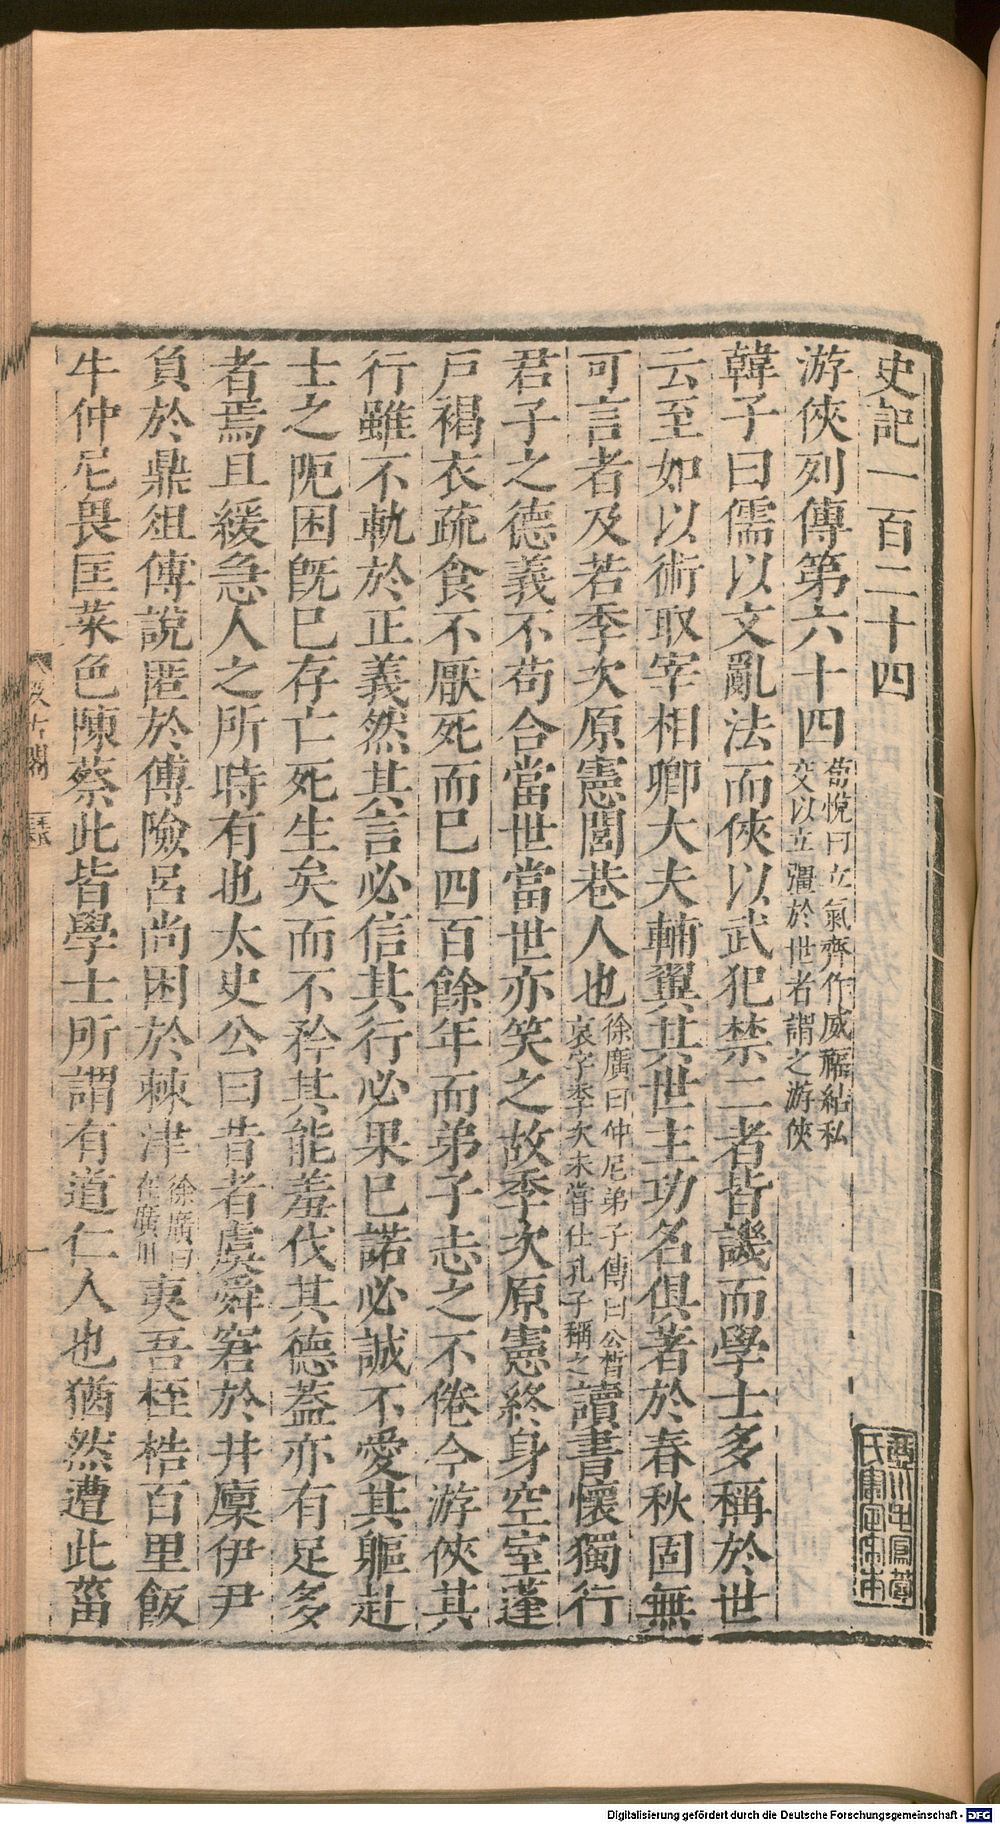 史記一百二十四
游俠列傳第六十四 荀悅曰立氣齊作威福結私交以立彊於世者謂之游俠
韓子曰儒以文亂法而俠以武犯禁二者皆譏而學士多稱於世
云至如以術取宰相卿大夫輔翼其世主功名俱著於春秋固無
可言者及若季次原憲閭巷人也 徐廣曰仲尼弟子傳曰公皙哀字季次未嘗仕孔子稱之 讀書懷獨行
君子之德義不苟合當世當世亦笑之故季次原憲終身空室蓬
戶褐衣疏食不厭死而已四百餘年而弟子志之不倦今游俠其
行雖不軌於正義然其言必信其行必果已諾必誠不愛其軀赴
士之阨困既已存亡死生矣而不矜其能羞伐其德蓋亦有足多
者焉且緩急人之所時有也太史公曰昔者虞舜窘於井廩伊尹
負於鼎俎傅說匿於傅險呂尚困於棘津 徐廣曰在廣川 夷吾桎梏百里飯
牛仲尼畏匡菜色陳蔡此皆學士所謂有道仁人也猶然遭此菑
Digitalisierung gefördert durch die Deutsche Forschungsgemeinschaft - DFG